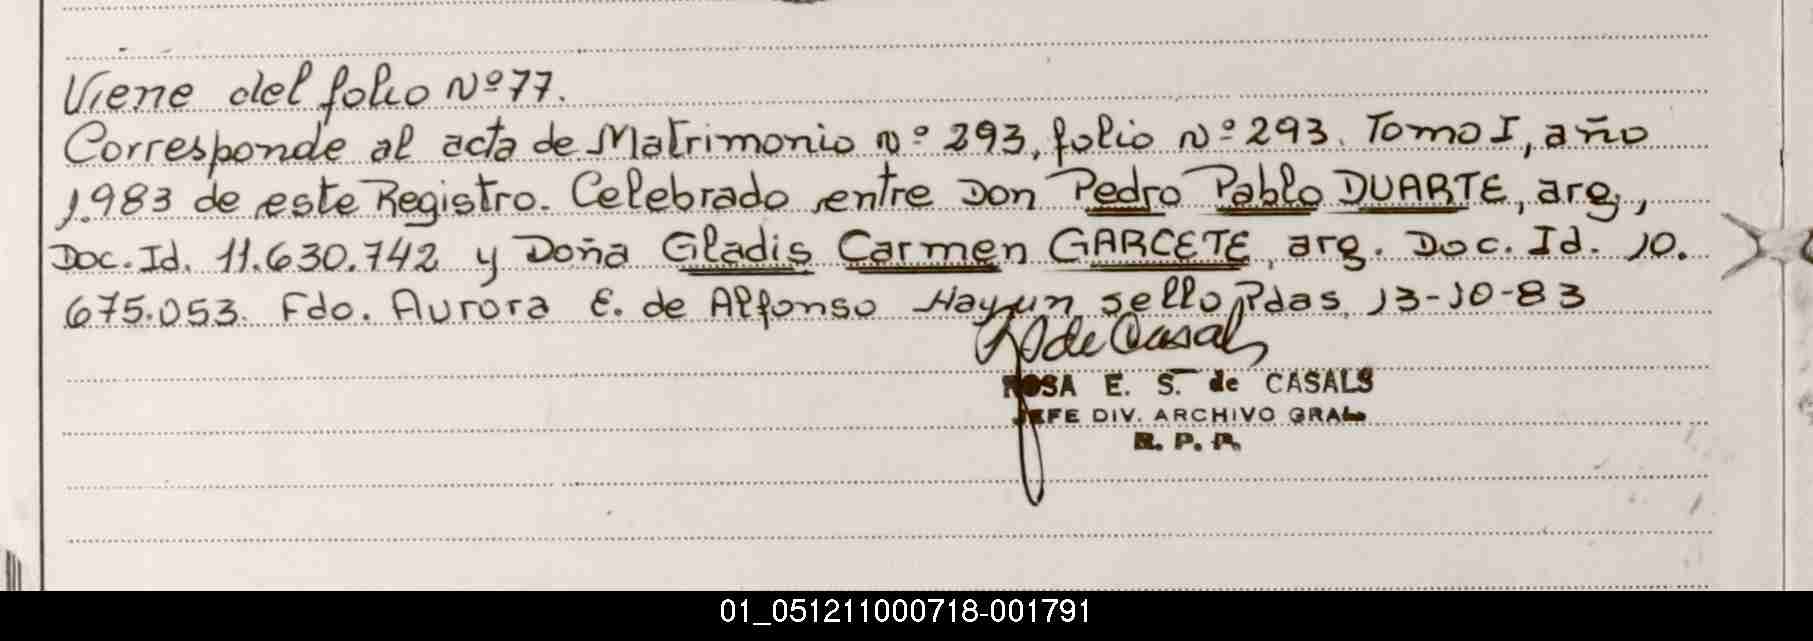 Viene del folio Nº 77.
Corresponde al acta de Matrimonio nº 293, folio Nº 293. Tomo I, año
1.983 de este Registro. Celebrado entre Don Pedro Pablo DUARTE, arg,
Doc. Id. 11.630.742 y Doña Gladis Carmen GARCETE, arg. Doc. Id. 10.
675.053. Fdo. Aurora E. de Alfonso Hay un sello Pdas. 13-10-83
de Casals
ROSA E. S. de CASALS
JEFE DIV. ARCHIVO GRAL.
R. P. P.
01_051211000718-001791